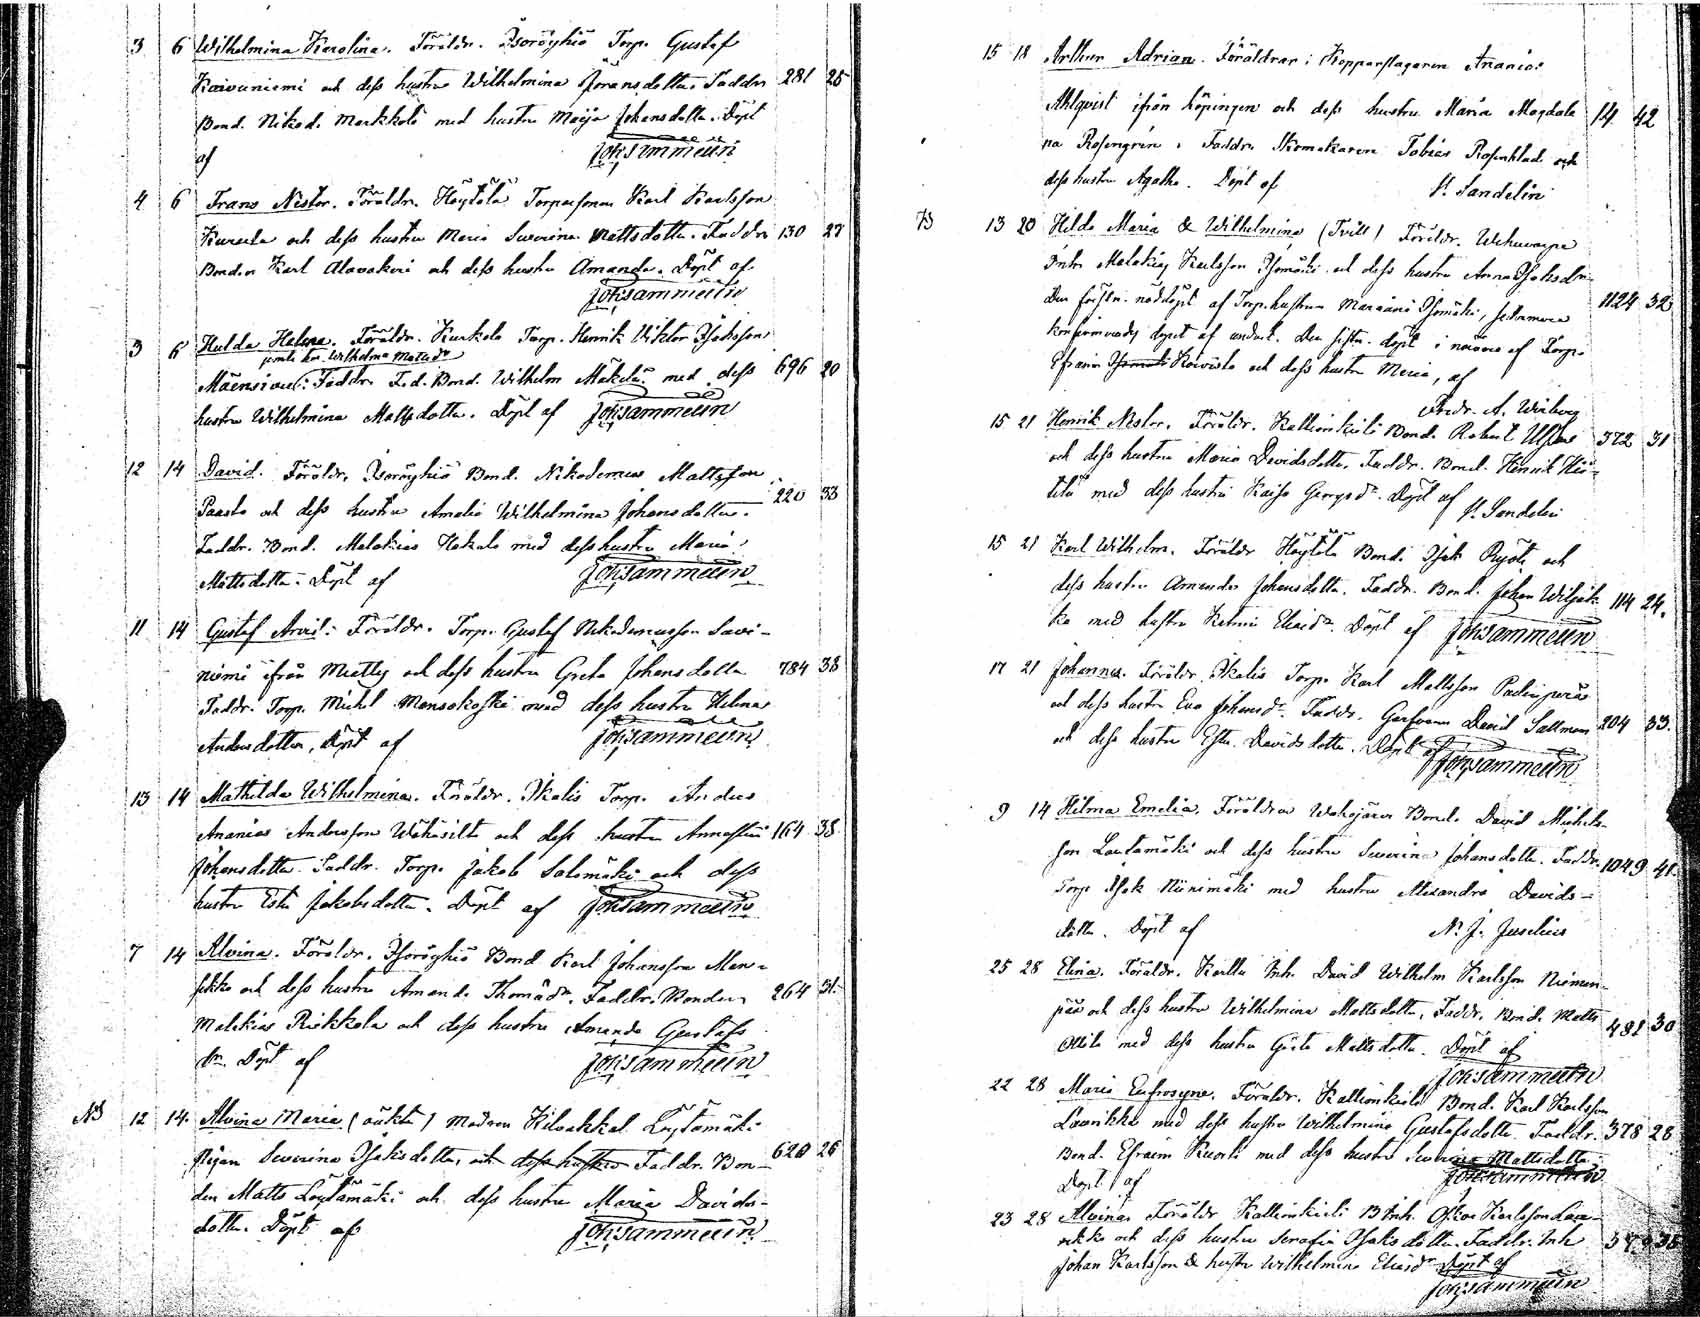 3 6 Wilhelmina Karolina. Föräldr. Isoröyhiö Torp. Gustaf
Koivuniemi och dess hustru Wilhelmina Göransdotter. Faddr. 281 25
Bond. Nikod. Markkola med hustru Maija Johansdotter. Döpt
af Joh: Sammelin
4 6 Frans Nestor. Föräldr. Höytölä Torparsonen Karl Karlsson
Kursela och dess hustru Maria Severina Mattsdotter. Faddr. 130 27
Bonden Karl Alavakeri och dess hustru Amanda. Döpt af
Joh: Sammelin
3 6 Hulda Helena. Föräldr. Kurkela Torp. Henrik Viktor Isaksson
Wilhelma Matsdr
Mäensivu. Faddr. F.d. Bond. Wilhelm Mäkelä med dess 696 20
hustru Wilhelmina Mattsdotter. Döpt af Joh: Sammelin
12 14 David. Föräldr. Isoröyhiö Bond. Nikodemus Mattsson
Paasto och dess hustru Amalia Wilhelmina Johansdotter. 220 33
Faddr. Bond. Malakias Hakala med dess hustru Maria
Mattsdotter. Döpt af Joh: Sammelin
11 14 Gustaf Arvid. Föräldr. Torp. Gustaf Nikodemusson Savi-
niemi ifrån Miettу och dess hustru Greta Johansdotter 784 38
Faddr. Torp. Michel Mansokoski med dess hustru Helena
Andersdotter. Döpt af Joh: Sammelin
13 14 Mathilda Wilhelmina. Föräldr. Ikalis Torp. Anders
Ananias Andersson Wähäsilta och dess hustru Annastiina 164 38
Johansdotter. Faddr. Torp. Jakob Salomäki och dess
hustru Ester Jakobsdotter. Döpt af Joh: Sammelin
7 14 Alvina. Föräldr. Isoröyhiö Bond Karl Johansson Man-
sikka och dess hustru Amanda Thomasdr. Faddr. Bonden 264 31
Malakias Riekkola och dess hustru Amanda Gustafs
dr. Döpt af Joh: Sammelin
NB 12 14. Alvina Maria (oäkta) Modren Kilvakkal Löytömäki
Pigan Severina Isaksdotter, och dess hustru Faddr. Bon- 620 26
den Matts Löytömäki och dess hustru Maria Davids-
dotter. Döpt af Joh: Sammelin
15 18 Arthur Adrian. Föräldrar: Kopparslagaren Ananias
Ahlqvist ifrån Köpingen och dess hustru Maria Magdale 14 42
na Rosengrén. Faddr. Skomakaren Tobias Rosenblad och
dess hustru Agatha. Döpt af Sandelin
13 20 Hilda Maria & Wilhelmina (Tvill) Föräldr. Wehuvarpe
Inh. Malakias Karlsson Isomäki och dess hustru Anna Isaksdr.
Den förstn. nöddöpt af Torp. hustrun Mariana Isomäki, sedermera 1124 32
konfirmerades dopet af undert. Den sistn. döpt i närvaro af Torp.
Efraim Koivisto och dess hustru Maria, af
Fredr. A. Winberg
15 21 Henrik Nestor. Föräldr. Kallionkieli Bond. Robert Uppa 372 31
och dess hustru Maria Davidsdotter. Faddr. Bond. Henrik Hie-
tilä med dess hustru Kaisa Georgsdr. Döpt af Sandelin
15 21 Karl Wilhelm. Föräldr. Höytölä Bond. Isak Rajala och
dess hustru Amanda Johansdotter. Faddr. Bond. Johan Wiljak- 114 24.
ka med hustru Katrina Eliaedr. Döpt af Joh: Sammelin
17 21 Johannes. Föräldr. Ikalis Torp. Karl Mattsson
och dess hustru Eva Johansdr. Faddr. Garfvaren David Sallman 204 33.
och dess hustru Ester Davidsdotter. Döpt af Joh: Sammelin
9 14 Hilma Emelia. Föräldrar Wahojärvi Bond. David Michels-
son Lautamäki och dess hustru Severina Johansdotter. Faddr. 1049 41.
Torp. Isak Niinimäki med hustru Alexandra Davids-
dotter. Döpt af N. J. Juselius
25 28 Elina. Föräldr. Kartu Inh. David Wilhelm Karlsson Niemen-
pää och dess hustru Wilhelmina Mattsdotter. Faddr. Bond. Matts 481 30
Ollila med dess hustru Greta Mattsdotter. Döpt af
Joh: Sammelin
22 28 Maria Eufrosyne. Föräldr. Kallionkieli Bond. Karl Karlsson
Laurikka med dess hustru Wilhelmina Gustafsdotter. Faddr. 378 28
Bond. Efraim Kuusti med dess hustru Severina Mattsdotter.
Döpt af Joh: Sammelin
23 28 Alvina. Föräldr. Kallionkieli B Inh. Oskar Karlsson Lau-
rikka och dess hustru Serafia Isaksdotter. Faddr. Inh.
Johan Karlsson & hustru Wilhelmina Eliaedr. Döpt af
Joh: Sammelin